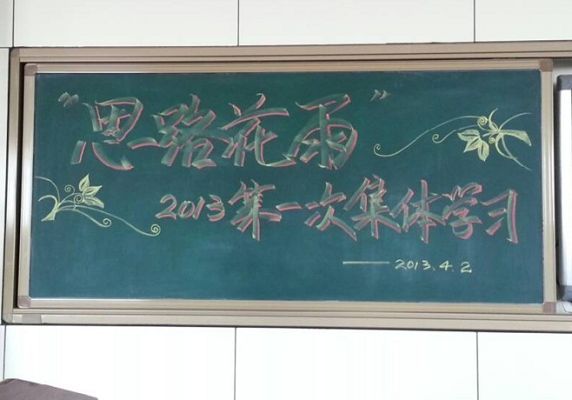 “思路花雨”
2013第一次集体学习
——2013.4.2